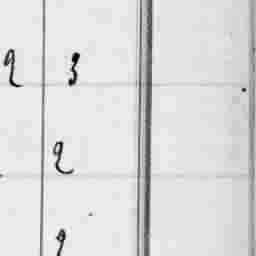 2 3
2
2